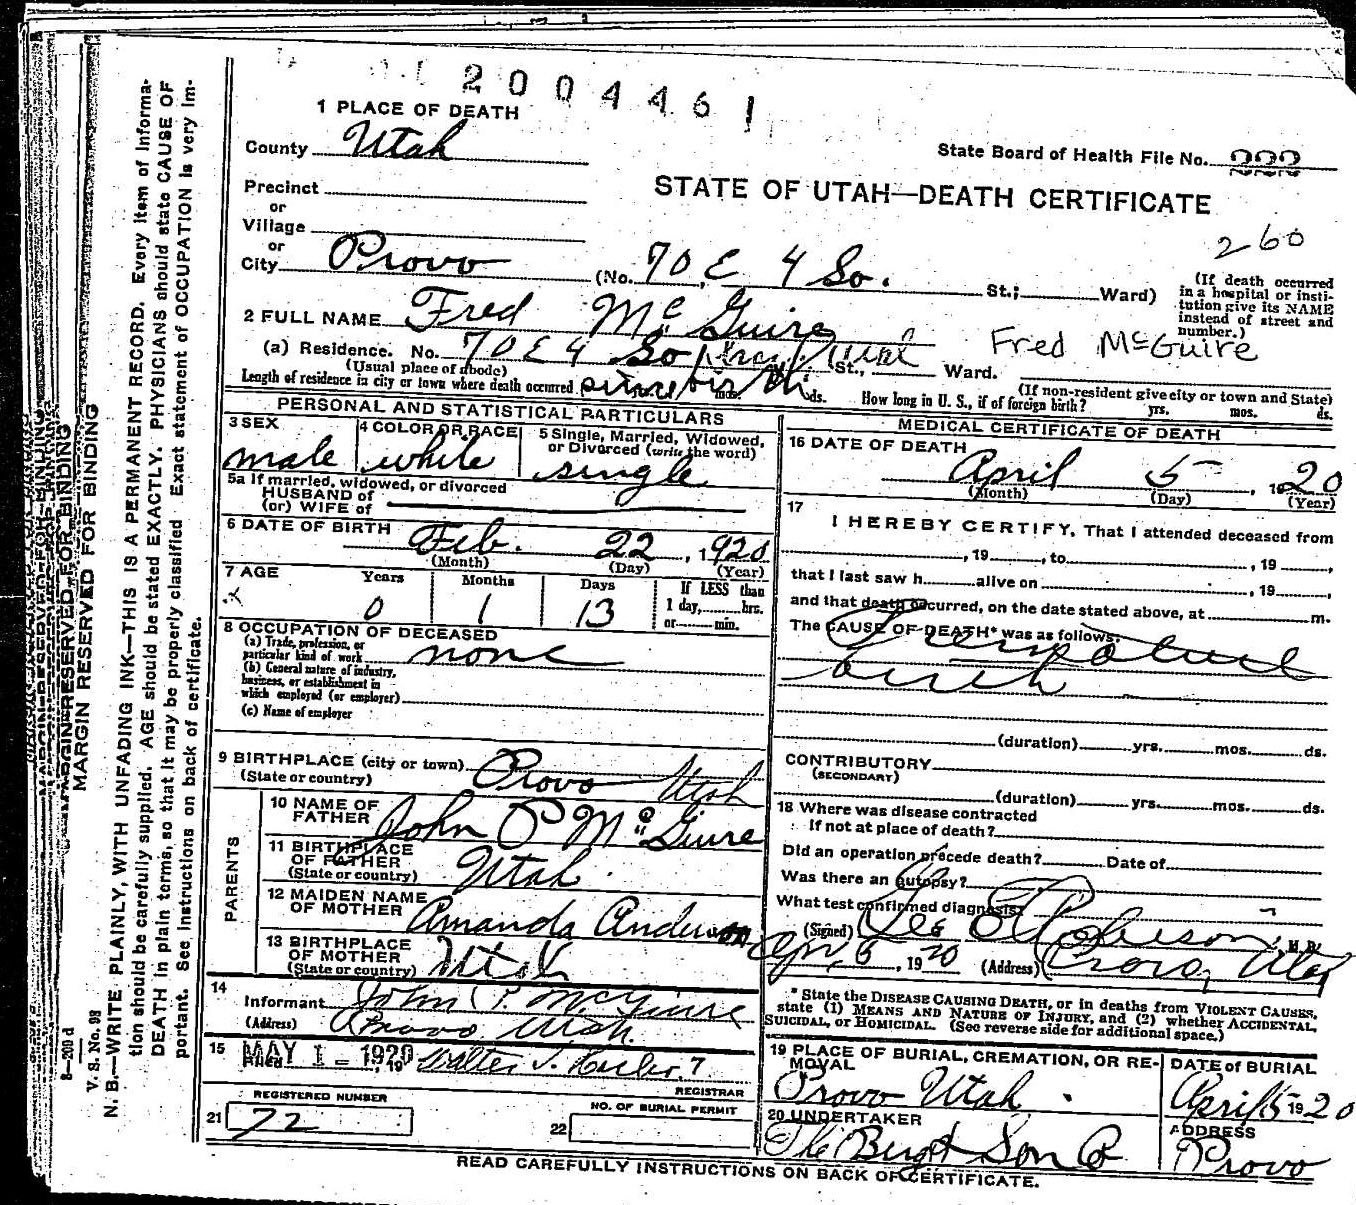 2004461
1 PLACE OF DEATH
County Utah
State Board of Health File No. 222
Precinct
or
Village
or
City Provo (No. 70 E 4 So. St.; Ward)
STATE OF UTAH—DEATH CERTIFICATE
260
(If death occurred
in a hospital or insti-
tution give its NAME
instead of street and
number.)
2 FULL NAME Fred McGuire
Fred McGuire
(a) Residence. No. 70 E 4 So St., Ward.
(Usual place of abode)
(If non-resident give city or town and State)
Length of residence in city or town where death occurred since birth mos. ds. How long in U. S., if of foreign birth? yrs. mos. ds.
PERSONAL AND STATISTICAL PARTICULARS
3 SEX
male
4 COLOR OR RACE
white
5 Single, Married, Widowed,
or Divorced (write the word)
single
5a If married, widowed, or divorced
HUSBAND of
(or) WIFE of
6 DATE OF BIRTH Feb. 22, 1920
(Month) (Day) (Year)
7 AGE Years Months Days If LESS than
1 day, hrs.
or min.
0 1 13
8 OCCUPATION OF DECEASED
(a) Trade, profession, or
particular kind of work none
(b) General nature of industry,
business, or establishment in
which employed (or employer)
(c) Name of employer
9 BIRTHPLACE (city or town) Provo Utah
(State or country)
PARENTS
10 NAME OF
FATHER John P McGuire
11 BIRTHPLACE
OF FATHER
(State or country) Utah
12 MAIDEN NAME
OF MOTHER Amanda Anderson
13 BIRTHPLACE
OF MOTHER
(State or country) Utah
14
Informant John P. McGuire
(Address) Provo Utah.
15 MAY 1 - 1920
Filed , 19 Walter T.
REGISTRAR
REGISTERED NUMBER
21 72
NO. OF BURIAL PERMIT
22
MEDICAL CERTIFICATE OF DEATH
16 DATE OF DEATH
April 5, 1920
(Month) (Day) (Year)
17
I HEREBY CERTIFY, That I attended deceased from
, 19 , to , 19 ,
that I last saw h alive on , 19 ,
and that death occurred, on the date stated above, at m.
The CAUSE OF DEATH* was as follows:
Premature
birth
(duration) yrs. mos. ds.
CONTRIBUTORY
(SECONDARY)
(duration) yrs. mos. ds.
18 Where was disease contracted
if not at place of death?
Did an operation precede death? Date of
Was there an autopsy?
What test confirmed diagnosis?
(Signed) , M. D.
Apr, 6, 1920 (Address) Provo, Utah
* State the DISEASE CAUSING DEATH, or in deaths from VIOLENT CAUSES,
state (1) MEANS AND NATURE OF INJURY, and (2) whether ACCIDENTAL,
SUICIDAL, or HOMICIDAL. (See reverse side for additional space.)
19 PLACE OF BURIAL, CREMATION, OR RE-
MOVAL
Provo Utah.
DATE OF BURIAL
April 5 1920
20 UNDERTAKER
The Berg & Son Co
ADDRESS
Provo
READ CAREFULLY INSTRUCTIONS ON BACK OF CERTIFICATE.
MARGIN RESERVED FOR BINDING
8—200 d
V. S. No. 98
N. B.—WRITE PLAINLY, WITH UNFADING INK—THIS IS A PERMANENT RECORD. Every item of informa-
tion should be carefully supplied. AGE should be stated EXACTLY. PHYSICIANS should state CAUSE OF
DEATH in plain terms, so that it may be properly classified. Exact statement of OCCUPATION is very im-
portant. See instructions on back of certificate.